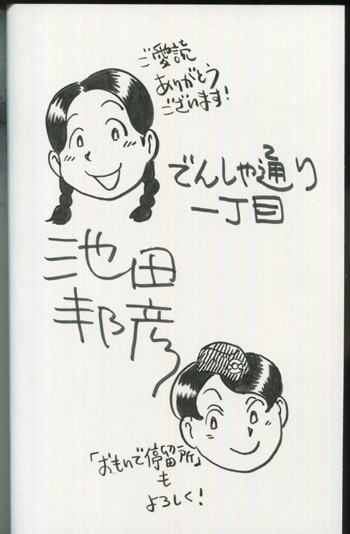 ご愛読
ありがとう
ございます!
でんしゃ通り
一丁目
池田
邦彦
「おもいで停留所」
も
よろしく!